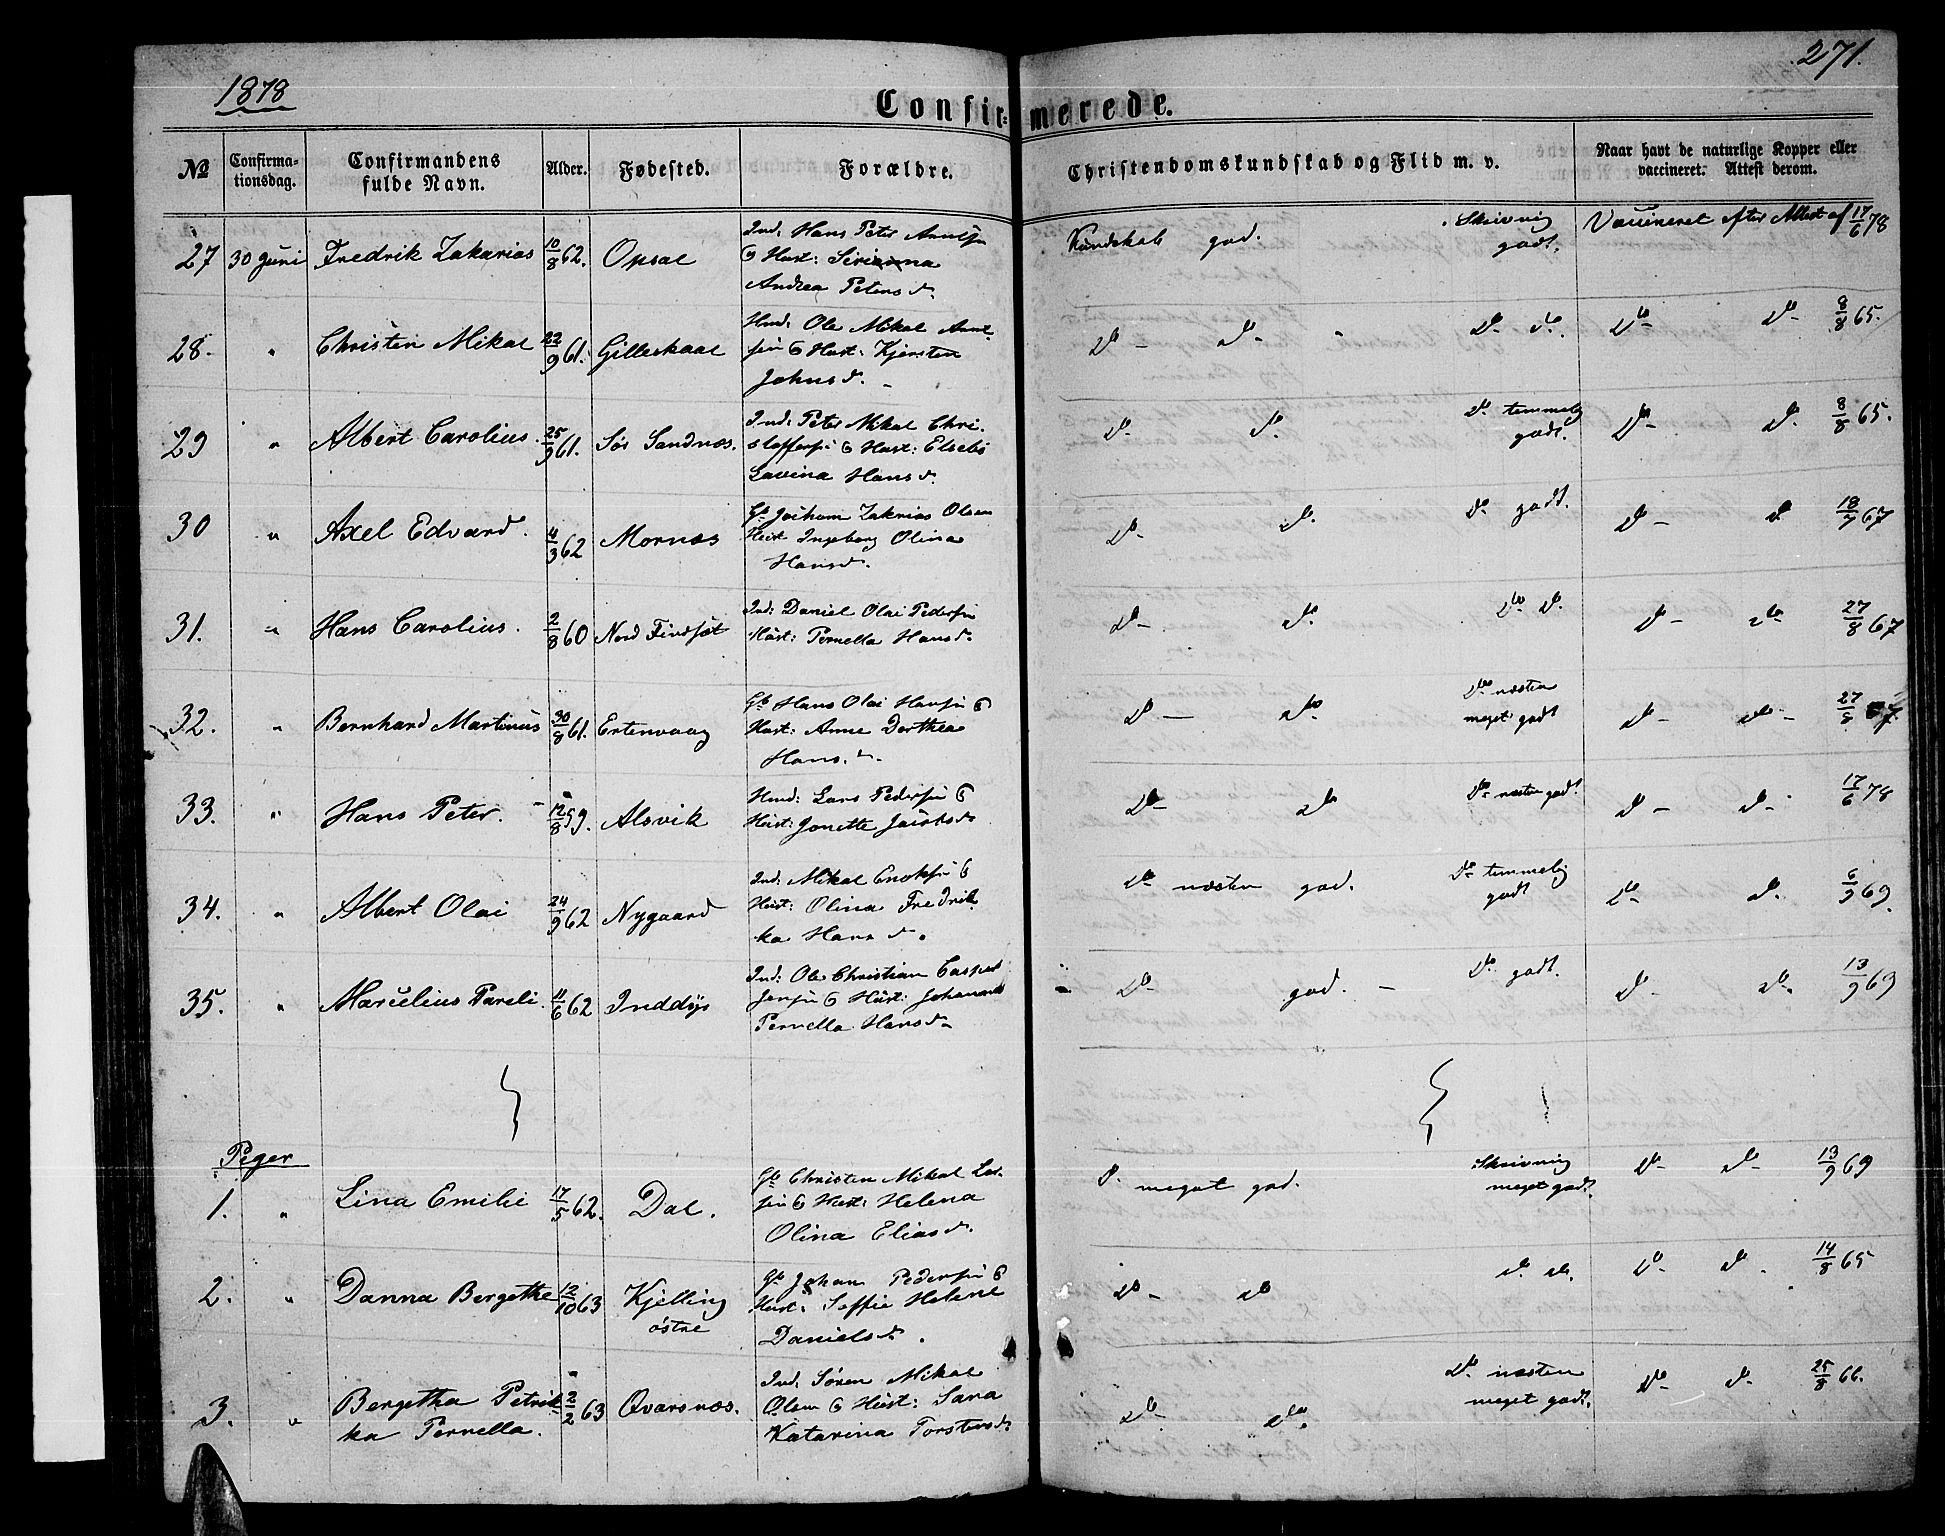 1878
271.
Confir=merede.
No
Confirma-
tionsdag.
Confirmandens
fulde Navn.
Alder.
Fødested.
Forældre.
Christendomskundskab og Flid m. v.
Naar havt de naturlige Kopper eller
vaccineret. Attest derom.
27 30 Juni Fredrik Zakarias 10/8 62. Opsal
Ind: Hans Peter
& Hust:
Andrea Petersd.
Kundskab god.
Skrivning
godt.
Vaccineret efter Attest af 17/6 78
28. " Christen Mikal 22/9 61. Gilleskaal
Hmd: Ole Mikal
& Hust: Kjersten
Johnsd.
Do - Do " Do Do. Do - Do - 8/8 65.
29 " Albert Carolius. 25/9 61. Sør Sandnæs.
Ind: Peter Mikal Chri-
stoffersen & Hust: Elsebe
Lavina Hansd.
Do - Do. Do temmelig
godt.
Do - Do. 8/8 65.
30 " Axel Edvard. 4/3 62 Mornæs
Gb Jochum Zakrias Olsen
Hust Ingeborg Olina
Hansd.
Do - Do. Do godt. Do - Do 18/7 67
31. " Hans Carolius. 2/8 60 Nord Findsæt
Ind: Daniel Olai Pedersen
Hust: Pernella Hansd.
Do - Do. Do Do. Do - Do 27/8 67
32. " Bernhard Martinus 30/8 61. Ertenvaag
Gb Hans Olai Hansen &
Hust: Anne Dorthea
Hans. d.
Do - Do Do næsten
meget godt
Do - Do - 27/8 67.
33. " Hans Peter. 12/8 59. Alsvik
Hmd: Lars Pedersen &
Hust: Jonette Jacobsd.
Do - Do Do næsten godt. Do - Do - 17/6 78
34. " Albert Olai 24/9 62 Nygaard
Ind: Mikal Enoksen &
Hust: Olina Fredrik-
ka Hans d.
Do næsten god. Do temmelig
godt
Do - Do. 6/9 69.
35. " Marcelius Pareli. 11/6 62 Inddyr
Ind: Ole Christian
& Hust: Johanna
Pernella Hansd.
Do - god. - Do. godt. Do - Do. 13/9 69
Piger
1. " Lina Emilie 17/5 62. Dal.
Gb Christen Mikal Lar-
sen & Hust: Helena
Olina Eliasd.
meget god.
Skrivning
meget godt.
Do - Do - 13/9 69
2. " Danna Bergethe 12/10 63 Kjelling
østre
Gb Johan Pedersen &
Hust: Seffie Helene
Danielsd.
Do - Do Do Do. Do - Do. 14/8 65
3. " Bergetha Petrik-
ka Pernella. 2/2 63 Qvarsnæs.
Ind: Søren Mikal
Olsen & Hust: Sara
Katarina Torstensd.
Do - Do. Do næsten
meget godt.
Do - Do - 25/8 66.